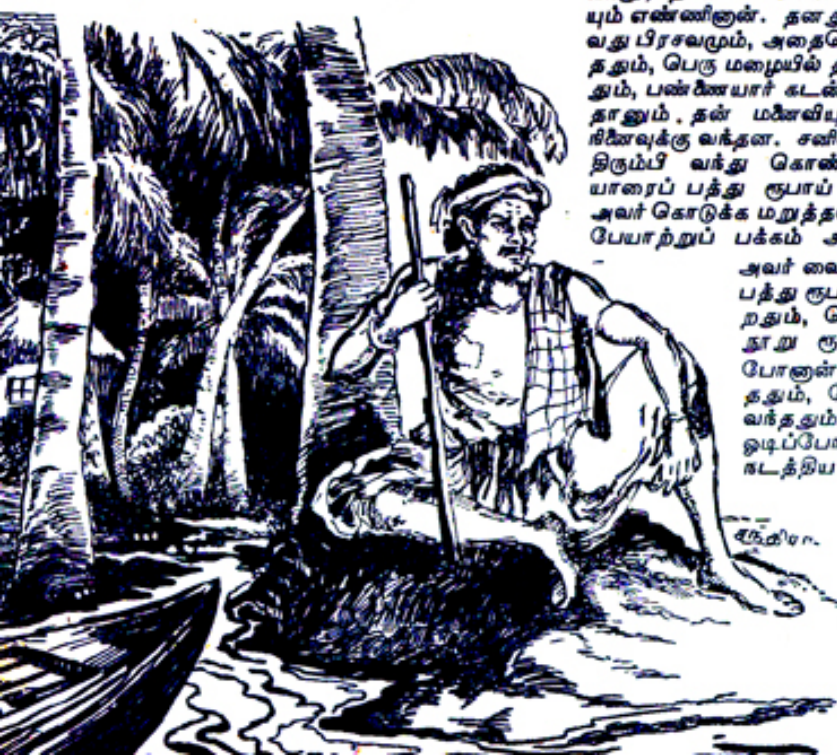 யும் எண்ணினான். தனது
வது பிரசவமும், அதை
ததும், பெரு மழையில்
தும், பண்ணையார் கடன்
தானும் தன் மனைவி
நினைவுக்கு வந்தன. சண்
திரும்பி வந்து கொண்
யாரைப் பத்து ரூபாய்
அவர் கொடுக்க மறுத்த
பேயாற்றுப் பக்கம்
அவர் வை
பத்து ரூப
றதும்,
நூறு ரூ
போனான்
ததும்,
வந்ததும்
ஓடிப்போ
நடத்திய
சந்திரா